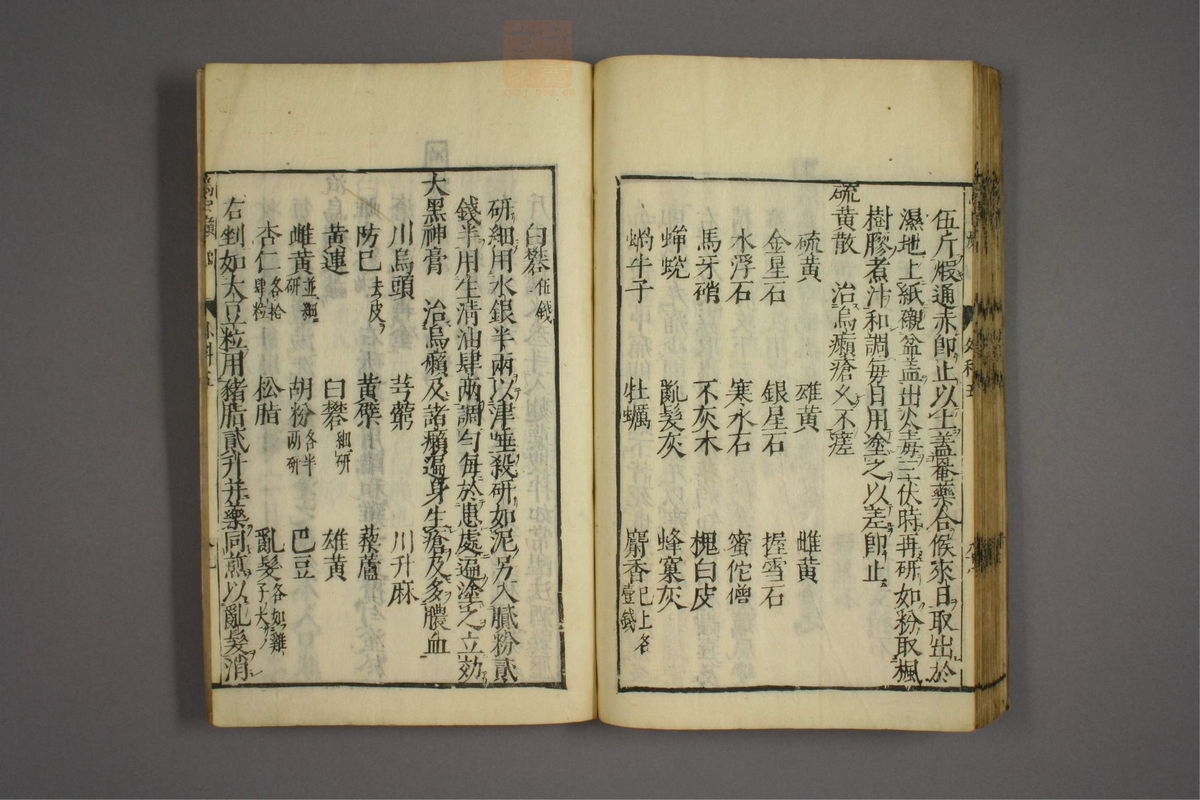 伍斤煅通赤即止以土蓋罨藥合候來日取出於
濕地上紙襯盆蓋出火毒三伏時再研如粉取楓
樹膠煮汁和調每日用塗之以差即止
硫黃散 治烏癩瘡久不瘥
硫黃 雄黃 雌黃
金星石 銀星石 握雪石
水浮石 寒水石 蜜佗僧
馬牙硝 不灰木 槐白皮
蟬蛻 亂髮灰 蜂窠灰
蝸牛子 牡蠣 麝香已上各壹錢
白礬伍錢
研細用水銀半兩以津唾殺研如泥另入膩粉貳
錢半用生清油肆兩調勻每於患處逼塗之立効
大黑神膏 治烏癩及諸癩遍身生瘡及多膿血
川烏頭 芎藭 川升麻
防己去皮 黃蘗 藜蘆
黃連 白礬細研 雄黃
雌黃並細研 胡粉各半兩研 巴豆
杏仁各拾肆粒 松脂 亂髮各如雞子大
右剉如大豆粒用豬脂貳升并藥同煎以亂髮消